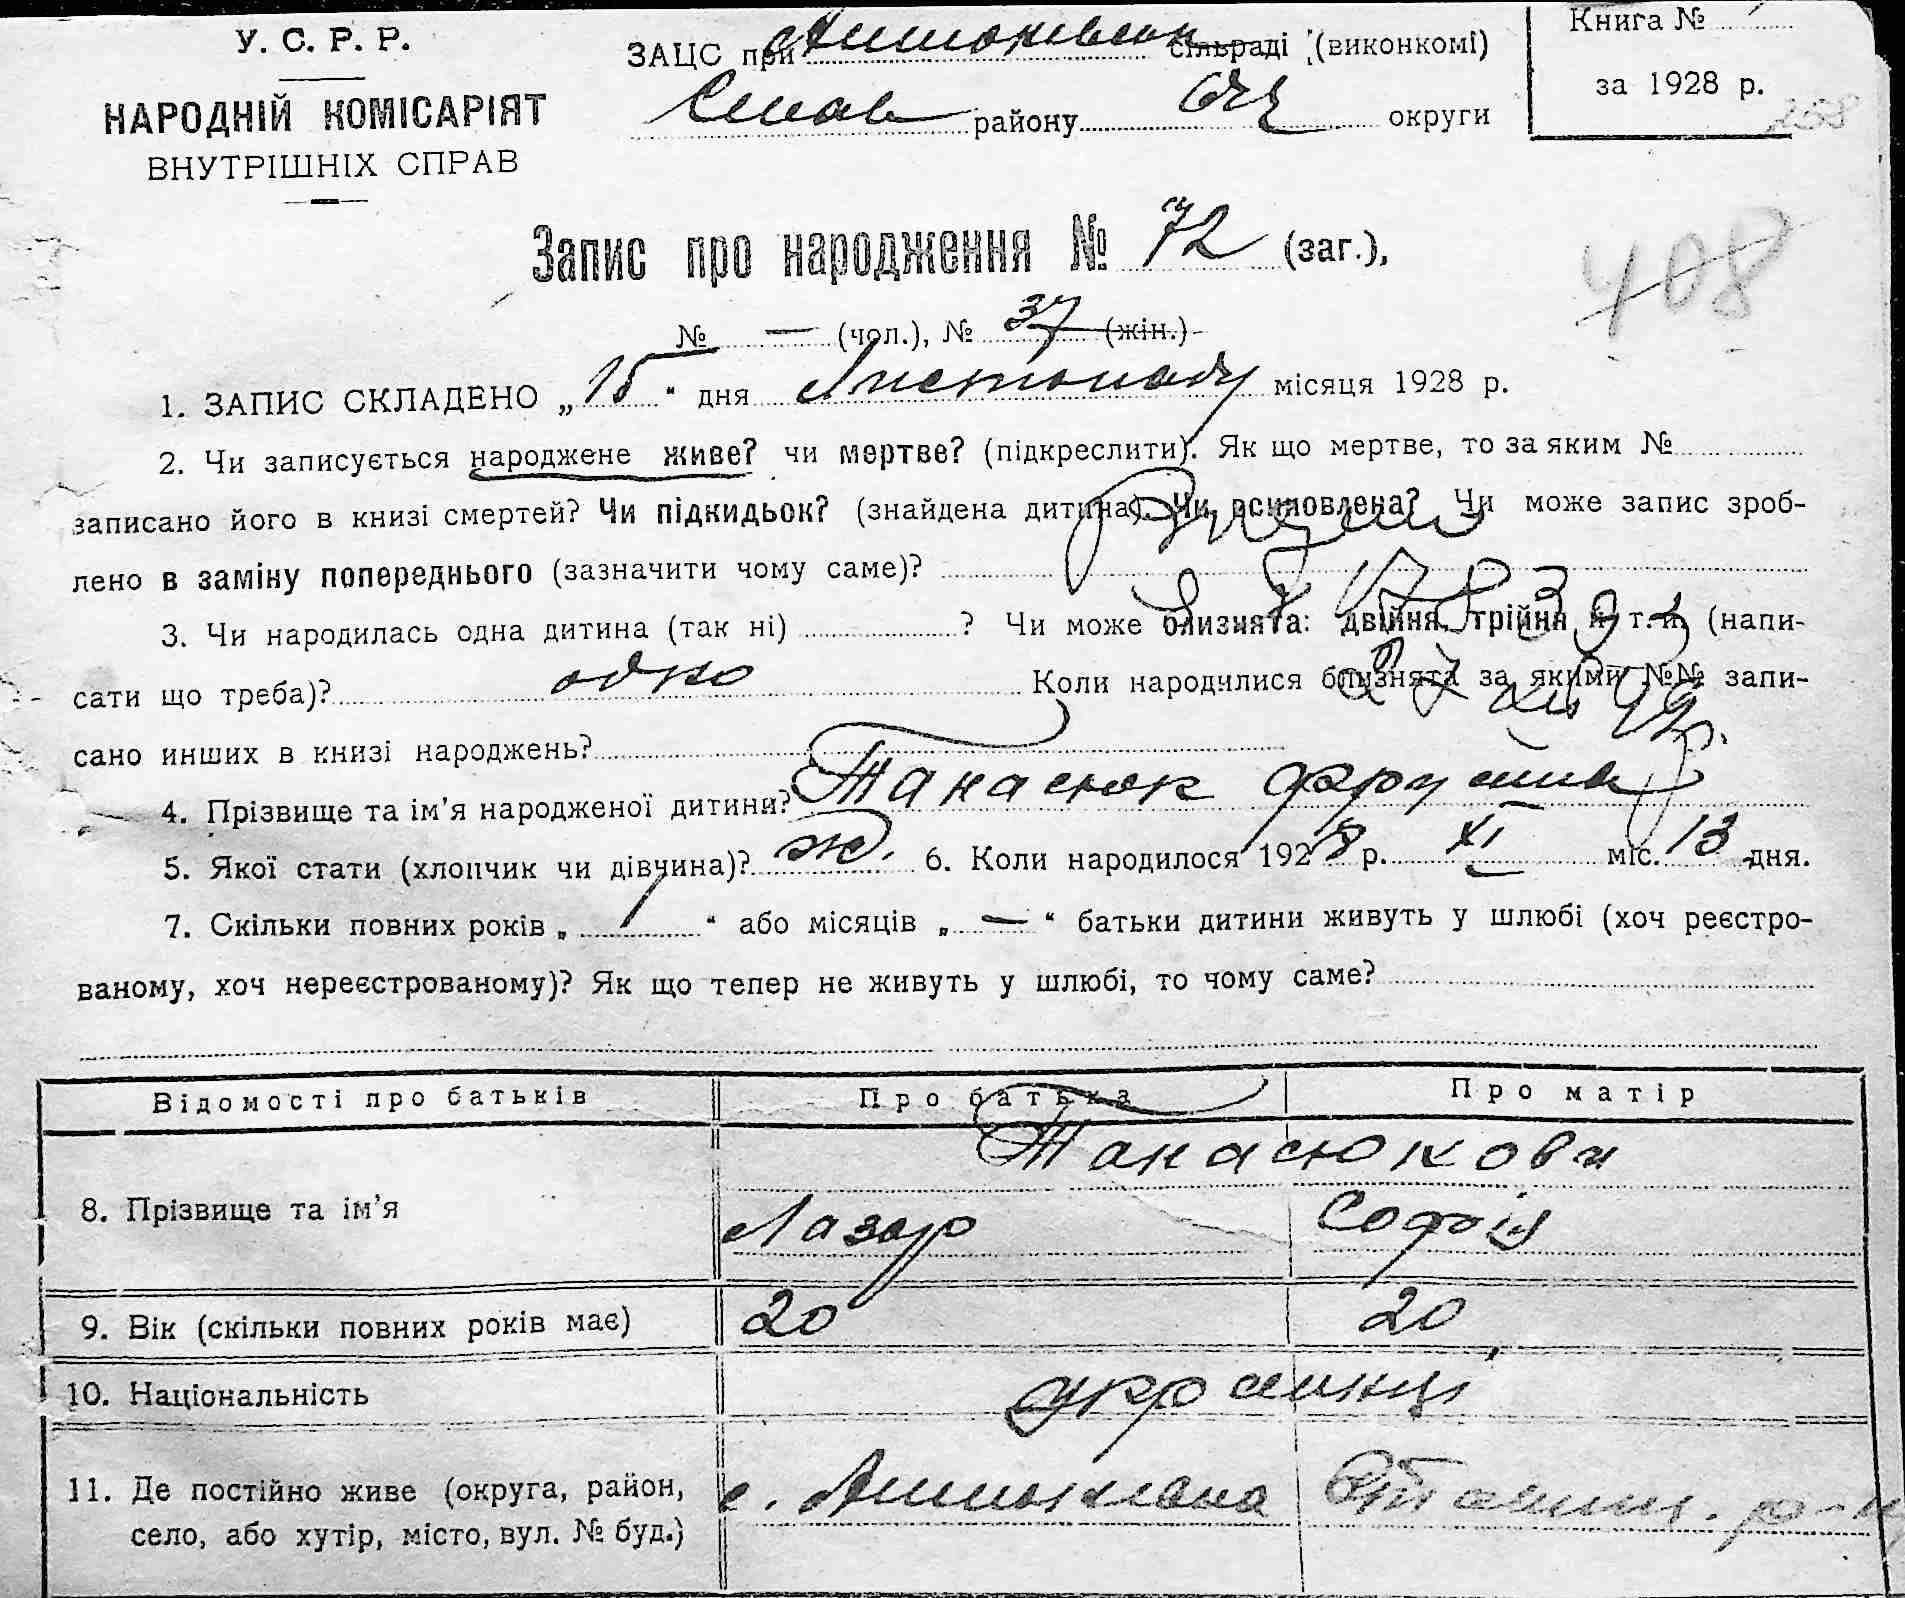 У. С. Р. Р.
НАРОДНІЙ КОМІСАРІЯТ
ВНУТРІШНІХ СПРАВ
ЗАЦС при сільраді (виконкомі)
Ставс району округи
Книга №
за 1928 р.
258
Запис про народження № 72 (заг.),
408
№ — (чол.), № 37 (жін.)
1. ЗАПИС СКЛАДЕНО „15“ дня Листопаду місяця 1928 р.
2. Чи записується народжене живе? чи мертве? (підкреслити). Як що мертве, то за яким №
записано його в книзі смертей? Чи підкидьок? (знайдена дитина). Чи всиновлена? Чи може запис зроб-
лено в заміну попереднього (зазначити чому саме)?
3. Чи народилась одна дитина (так ні) ? Чи може близнята: двійня, трійня й т. и. (напи-
сати що треба)? одно Коли народилися близнята за якими №№ запи-
сано инших в книзі народжень?
4. Прізвище та ім'я народженої дитини? Танасюк
5. Якої стати (хлопчик чи дівчина)? ж. 6. Коли народилося 1928 р. XI міс. 13 дня.
7. Скільки повних років „ 1 “ або місяців „ — “ батьки дитини живуть у шлюбі (хоч реєстро-
ваному, хоч нереєстрованому)? Як що тепер не живуть у шлюбі, то чому саме?
Відомості про батьків Про батька Про матір
Танасюкови
8. Прізвище та ім'я Лазар Софія
9. Вік (скільки повних років має) 20 20
10. Національність українці
11. Де постійно живе (округа, район, с.
село, або хутір, місто, вул. № буд.)